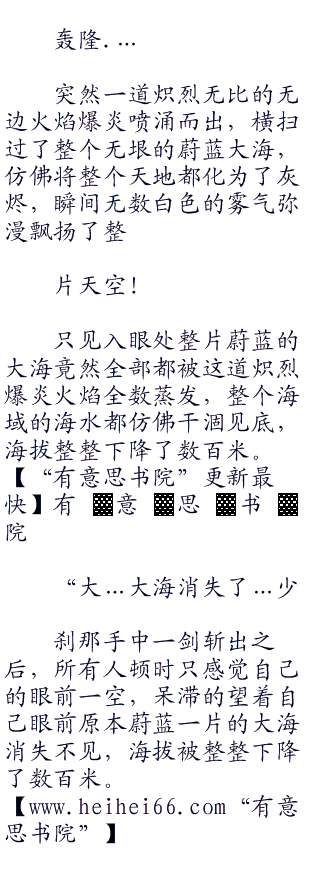 轰隆.…
突然一道炽烈无比的无
边火焰爆炎喷涌而出，横扫
过了整个无垠的蔚蓝大海，
仿佛将整个天地都化为了灰
烬，瞬间无数白色的雾气弥
漫飘扬了整
片天空！
只见入眼处整片蔚蓝的
大海竟然全部都被这道炽烈
爆炎火焰全数蒸发，整个海
域的海水都仿佛干涸见底，
海拔整整下降了数百米。
【“有意思书院”更新最
快】有▓意▓思▓书▓
院
“大…大海消失了…少
刹那手中一剑斩出之
后，所有人顿时只感觉自己
的眼前一空，呆滞的望着自
己眼前原本蔚蓝一片的大海
消失不见，海拔被整整下降
了数百米。
【www.heihei66.com“有意
思书院”】